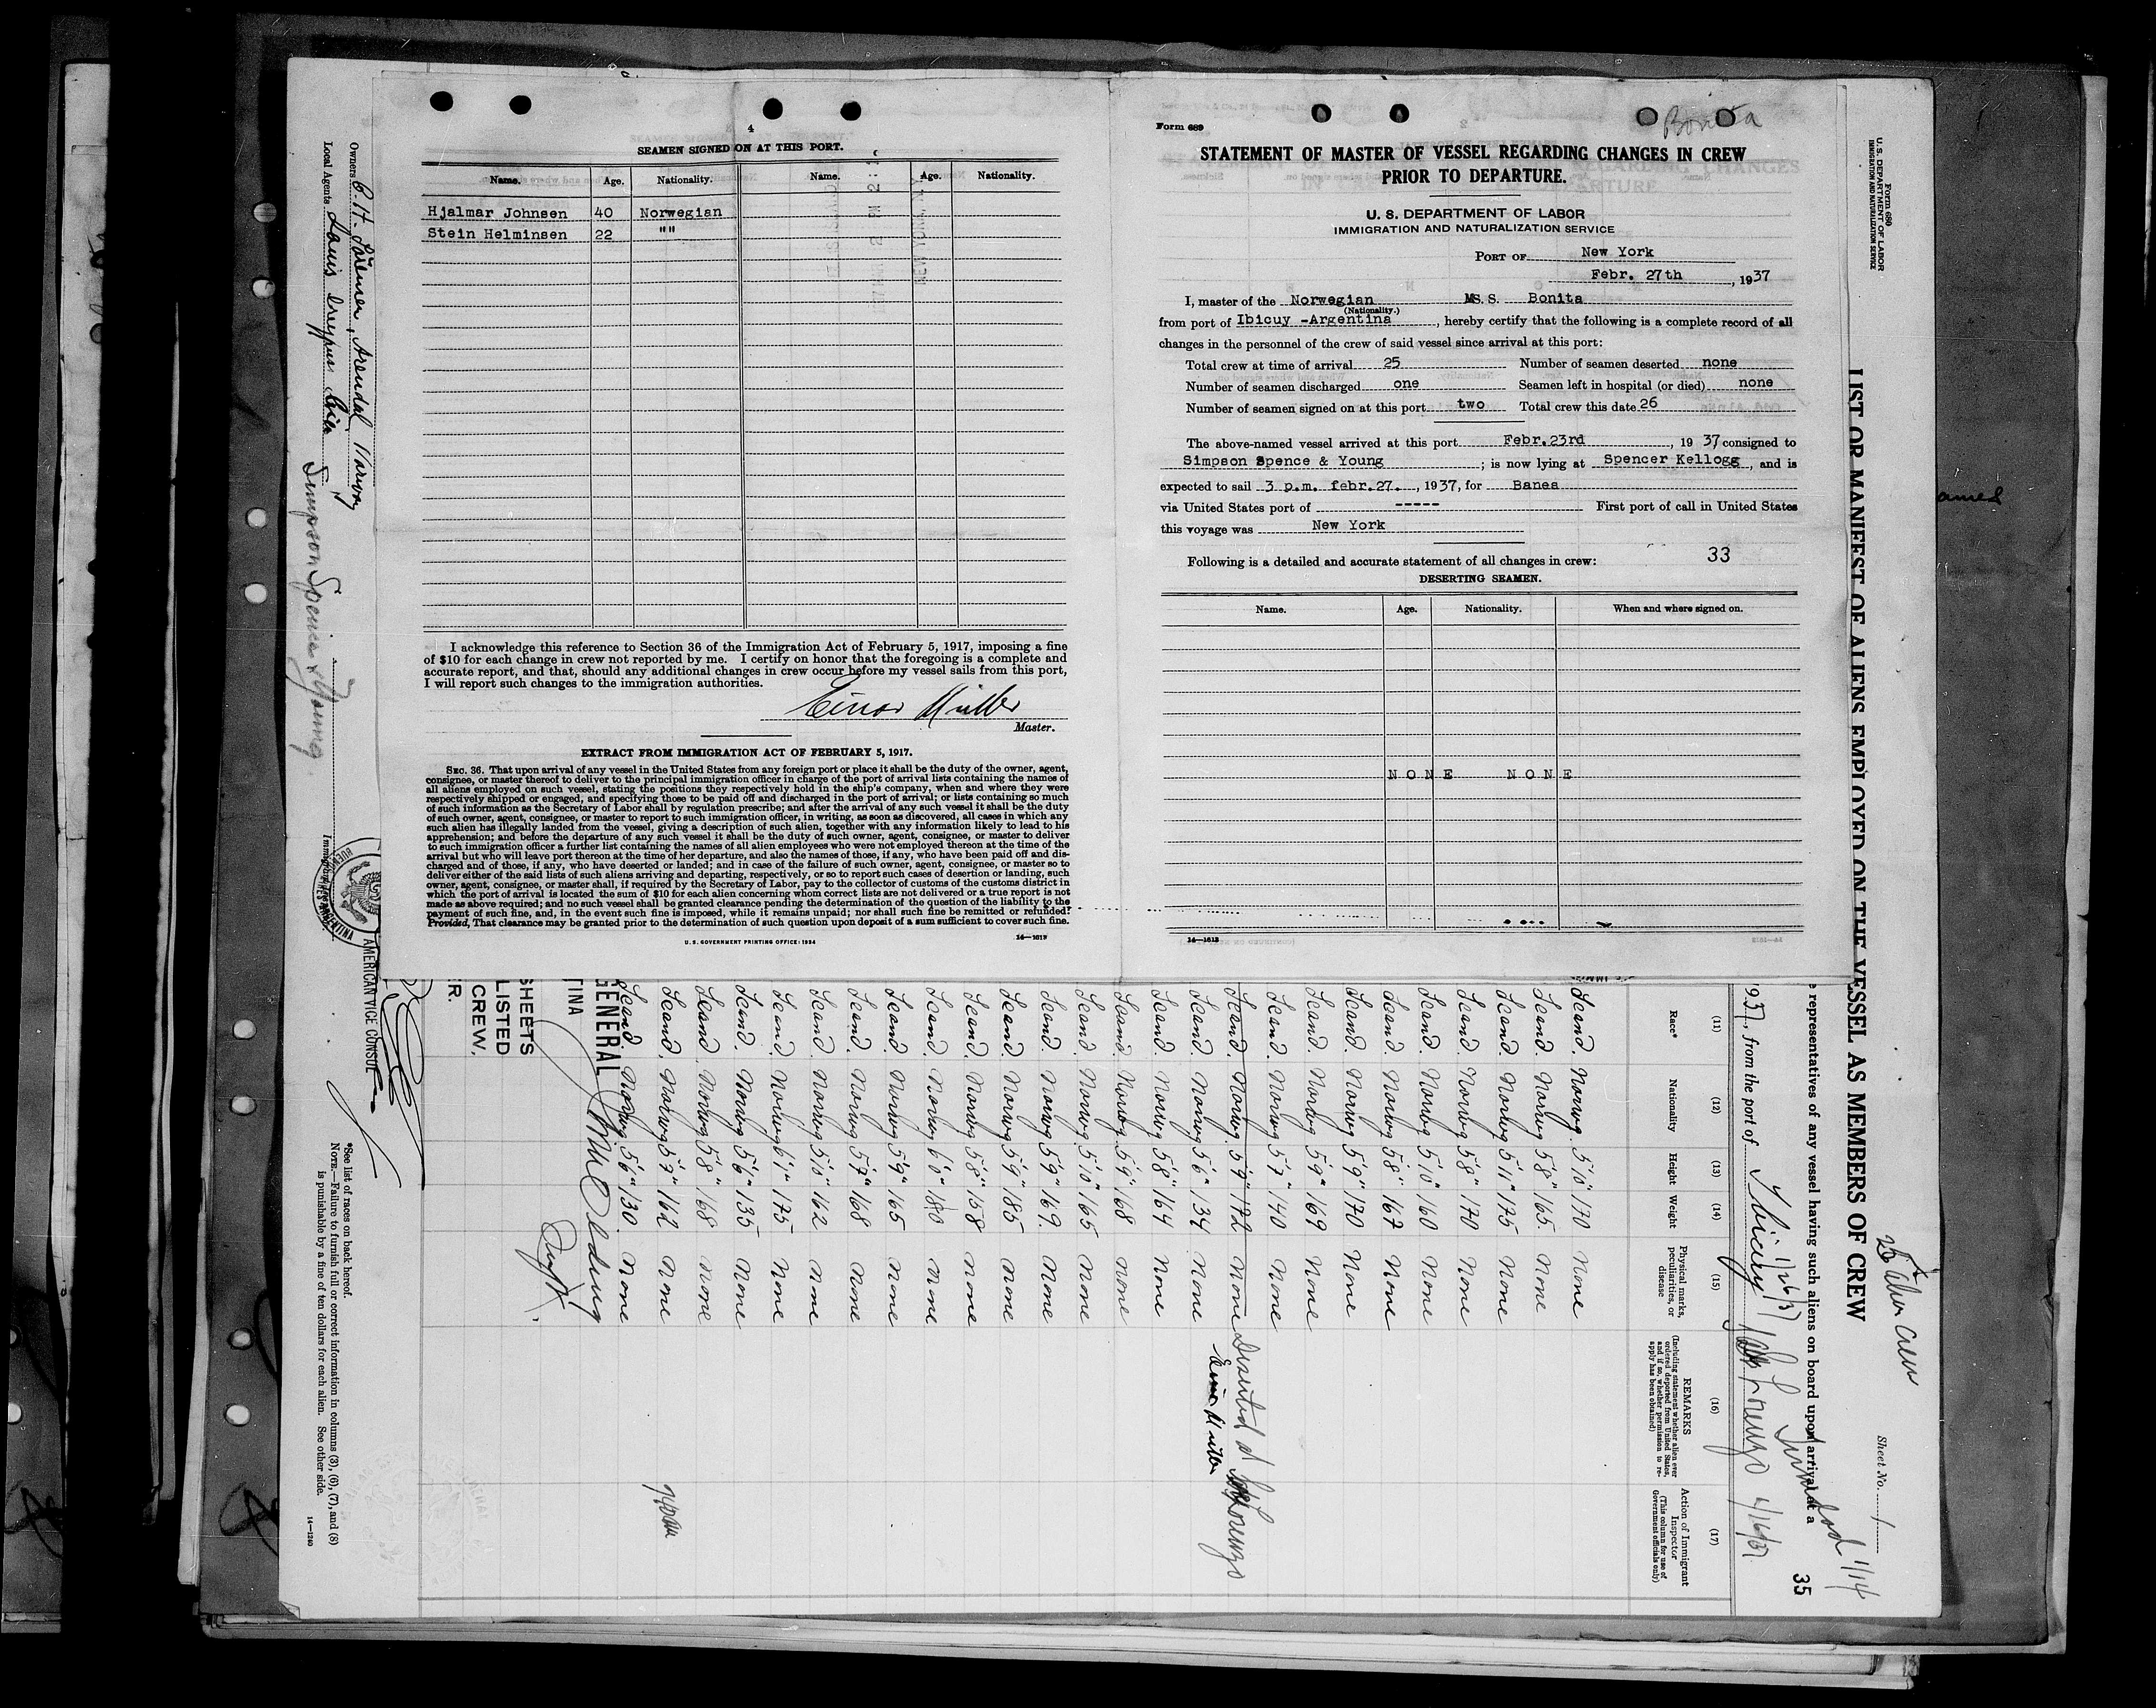 4
SEAMEN SIGNED ON AT THIS PORT.
Name. Age. Nationality. Name. Age. Nationality.
Hjalmar Johnsen 40 Norwegian
Stein Helminsen 22 " "
I acknowledge this reference to Section 36 of the Immigration Act of February 5, 1917, imposing a fine
of $10 for each change in crew not reported by me. I certify on honor that the foregoing is a complete and
accurate report, and that, should any additional changes in crew occur before my vessel sails from this port,
I will report such changes to the immigration authorities.
Master.
EXTRACT FROM IMMIGRATION ACT OF FEBRUARY 5, 1917.
SEC. 36. That upon arrival of any vessel in the United States from any foreign port or place it shall be the duty of the owner, agent,
consignee, or master thereof to deliver to the principal immigration officer in charge of the port of arrival lists containing the names of
all aliens employed on such vessel, stating the positions they respectively hold in the ship's company, when and where they were
respectively shipped or engaged, and specifying those to be paid off and discharged in the port of arrival; or lists containing so much
of such information as the Secretary of Labor shall by regulation prescribe; and after the arrival of any such vessel it shall be the duty
of such owner, agent, consignee, or master to report to such immigration officer, in writing, as soon as discovered, all cases in which any
such alien has illegally landed from the vessel, giving a description of such alien, together with any information likely to lead to his
apprehension; and before the departure of any such vessel it shall be the duty of such owner, agent, consignee, or master to deliver
to such immigration officer a further list containing the names of all alien employees who were not employed thereon at the time of the
arrival but who will leave port thereon at the time of her departure, and also the names of those, if any, who have been paid off and dis-
charged and of those, if any, who have deserted or landed; and in case of the failure of such owner, agent, consignee, or master so to
deliver either of the said lists of such aliens arriving and departing, respectively, or so to report such cases of desertion or landing, such
owner, agent, consignee, or master shall, if required by the Secretary of Labor, pay to the collector of customs of the customs district in
which the port of arrival is located the sum of $10 for each alien concerning whom correct lists are not delivered or a true report is not
made as above required; and no such vessel shall be granted clearance pending the determination of the question of the liability to the
payment of such fine, and, in the event such fine is imposed, while it remains unpaid; nor shall such fine be remitted or refunded:
Provided, That clearance may be granted prior to the determination of such question upon deposit of a sum sufficient to cover such fine.
U. S. GOVERNMENT PRINTING OFFICE: 1934
Bonita
Form 689
STATEMENT OF MASTER OF VESSEL REGARDING CHANGES IN CREW
PRIOR TO DEPARTURE.
U. S. DEPARTMENT OF LABOR
IMMIGRATION AND NATURALIZATION SERVICE
PORT OF New York
Febr. 27th, 1937
I, master of the Norwegian MS. S. Bonita
(Nationality.)
from port of Ibicuy -Argentina, hereby certify that the following is a complete record of all
changes in the personnel of the crew of said vessel since arrival at this port:
Total crew at time of arrival 25 Number of seamen deserted none
Number of seamen discharged one Seamen left in hospital (or died) none
Number of seamen signed on at this port two Total crew this date 26
The above-named vessel arrived at this port Febr. 23rd, 1937 consigned to
Simpson Spence & Young; is now lying at Spencer Kellogg, and is
expected to sail 3 p.m. febr.27., 1937, for Banes
via United States port of ----- First port of call in United States
this voyage was New York
Following is a detailed and accurate statement of all changes in crew: 33
DESERTING SEAMEN.
Name. Age. Nationality. When and where signed on.
NONE NONE
14—1613
Form 689
U. S. DEPARTMENT OF LABOR
IMMIGRATION AND NATURALIZATION SERVICE
LIST OR MANIFEST OF ALIENS EMPLOYED ON THE VESSEL AS MEMBERS OF CREW
Sheet No. 1
35
representatives of any vessel having such aliens on board upon arrival at a
from the port of Ibicuy
(11) (12) (13) (14) (15) (16) (17)
Race* Nationality Height Weight Physical marks, peculiarities, or disease
REMARKS
(Including statement whether alien ever ordered deported from United States, and if so, whether permission to re-apply has been obtained)
Action of Immigrant Inspector
(This column for use of Government officials only)
Scand. Norweg. 5'10" 170 None
Scand. Norweg 5'8" 165 None
Scand. Norweg 5'11" 175 None
Scand. Norweg 5'8" 170 None
Scand. Norweg 5'10" 160 None
Scand. Norweg 5'8" 167 None
Scand. Norweg 5'9" 170 None
Scand. Norweg 5'9" 169 None
Scand. Norweg 5'7" 140 None
Scand. Norweg 5'9" 172 None Deserted
Scand. Norweg 5'6" 134 None
Scand. Norweg 5'8" 164 None
Scand. Norweg 5'9" 168 None
Scand. Norweg 5'10" 165 None
Scand. Norweg 5'9" 169 None
Scand. Norweg 5'9" 185 None
Scand. Norweg 5'8" 158 None
Scand. Norweg 6'0" 180 None
Scand. Norweg 5'9" 165 None
Scand. Norweg 5'7" 168 None
Scand. Norweg 5'10" 162 None
Scand. Norweg 6'1" 175 None
Scand. Norweg 5'6" 135 None
Scand. Norweg 5'8" 168 None
Scand. Norweg 5'7" 162 None
Scand. Norweg. 5'6" 130 None
GENERAL
TINA
SHEETS
LISTED
CREW.
AMERICAN VICE CONSUL
*See list of races on back hereof.
NOTE.—Failure to furnish full or correct information in columns (3), (6), (7), and (8)
is punishable by a fine of ten dollars for each alien. See other side.
14—1240
Owners Arendal, Norway
Local Agents Louis Dreyfus
Simpson Spence & Young